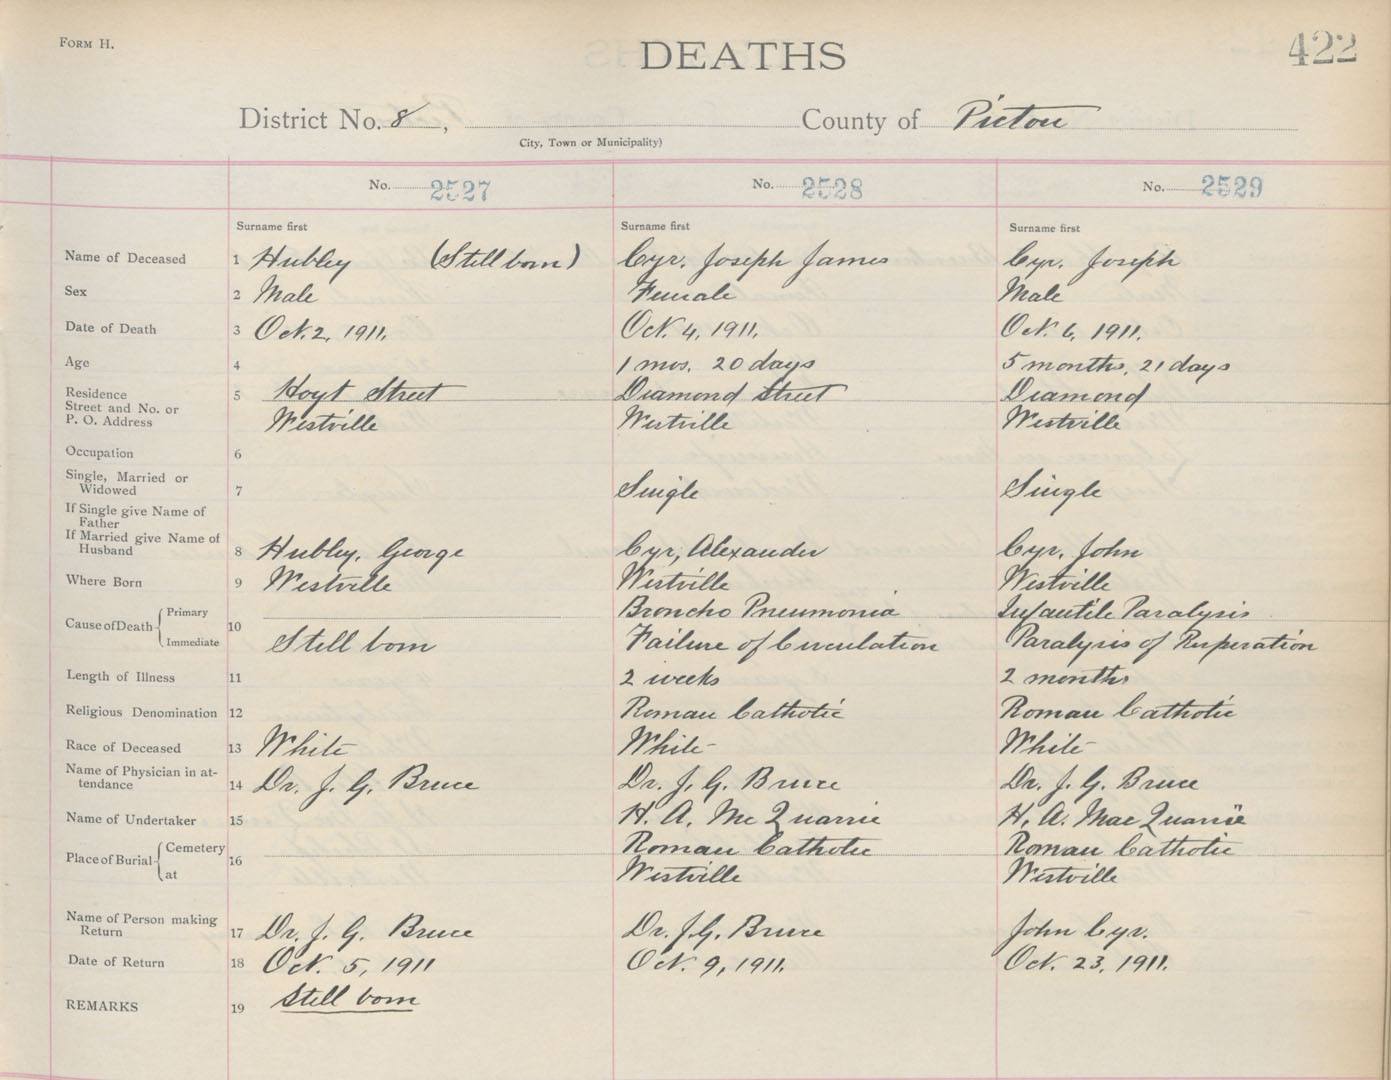 FORM H.
DEATHS
422
District No. 8, County of Pictou
City, Town or Municipality)
No. 2527 No. 2528 No. 2529
Surname first Surname first Surname first
Name of Deceased 1 Hubley (Still born) Cyr, Joseph James Cyr, Joseph
Sex 2 Male Female Male
Date of Death 3 Oct. 2, 1911. Oct. 4, 1911. Oct. 6, 1911.
Age 4 1 mos. 20 days 5 months, 21 days
Residence 5 Hoyt Street Diamond Street Diamond
Street and No. or
P. O. Address Westville Westville Westville
Occupation 6
Single, Married or
Widowed 7 Single Single
If Single give Name of
Father
If Married give Name of
Husband 8 Hubley, George Cyr, Alexander Cyr, John
Where Born 9 Westville Westville Westville
Cause of Death 10 Primary Broncho Pneumonia Infantile Paralysis
Immediate Still born Failure of Circulation Paralysis of Resperation
Length of Illness 11 2 weeks 2 months
Religious Denomination 12 Roman Catholic Roman Catholic
Race of Deceased 13 White White White
Name of Physician in at-
tendance 14 Dr. J. G. Bruce Dr. J. G. Bruce Dr. J. G. Bruce
Name of Undertaker 15 H. A. Mc Quarrie H. A. Mac Quarrie
Place of Burial 16 Cemetery Roman Catholic Roman Catholic
at Westville Westville
Name of Person making
Return 17 Dr. J. G. Bruce Dr. J. G. Bruce John Cyr.
Date of Return 18 Oct. 5, 1911 Oct. 9, 1911. Oct. 23, 1911.
REMARKS 19 Still born